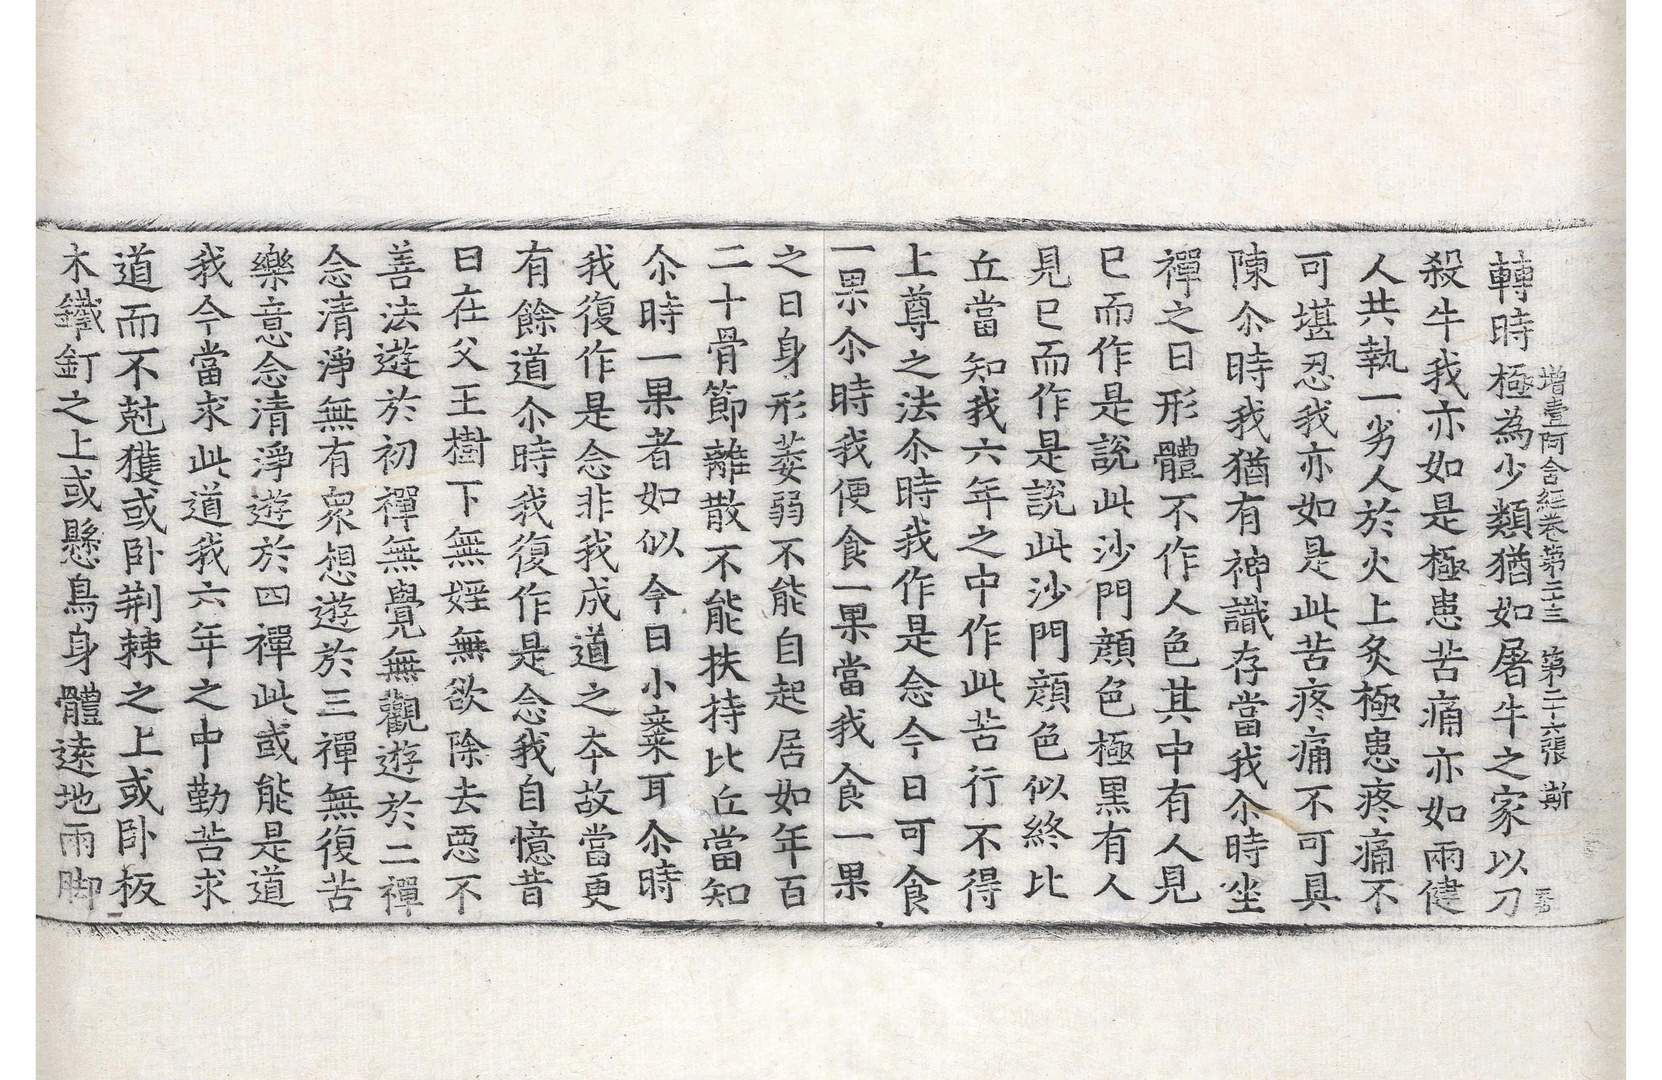 增壹阿含經卷第二十三 第二十六張 斯
轉時極為少類猶如屠牛之家以刀
殺牛我亦如是極患苦痛亦如兩健
人共執一劣人於火上炙極患疼痛不
可堪忍我亦如是此苦疼痛不可具
陳尒時我猶有神識存當我尒時坐
禪之日形體不作人色其中有人見
已而作是說此沙門顏色極黑有人
見已而作是說此沙門顏色似終比
丘當知我六年之中作此苦行不得
上尊之法尒時我作是念今日可食
一果尒時我便食一果當我食一果
之日身形萎弱不能自起居如年百
二十骨節離散不能扶持比丘當知
尒時一果者如似今日小棗耳尒時
我復作是念非我成道之夲故當更
有餘道尒時我復作是念我自憶昔
日在父王樹下無婬無欲除去惡不
善法遊於初禪無覺無觀遊於二禪
念清淨無有衆想遊於三禪無復苦
樂意念清淨遊於四禪此或能是道
我今當求此道我六年之中勤苦求
道而不尅獲或卧荆棘之上或卧板
木鐵釘之上或懸鳥身體逺地兩脚